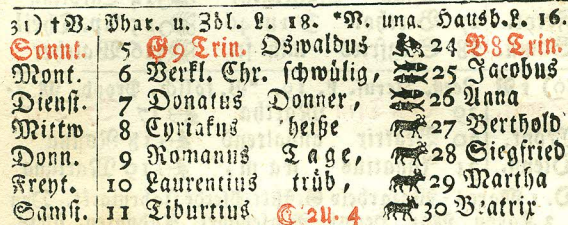 31) † V. Phar. u. Zöl. L. 18. *V. ung. Haush. L. 16.
Sonnt. G 9 Trin. Oswaldus 24 B 8 Trin.
Mont. 6 Verkl. Chr. schwülig, 25 Jacobus
Dienst. 7 Donatus Donner, 26 Anna
Mittw 8 Cyriakus heiße 27 Berthold
Donn. 9 Romanus Tage, 28 Siegfried
Freyt. 10 Laurentius trüb, 29 Martha
Samst. 11 Tiburtius 2 U. 4 30 Beatrix